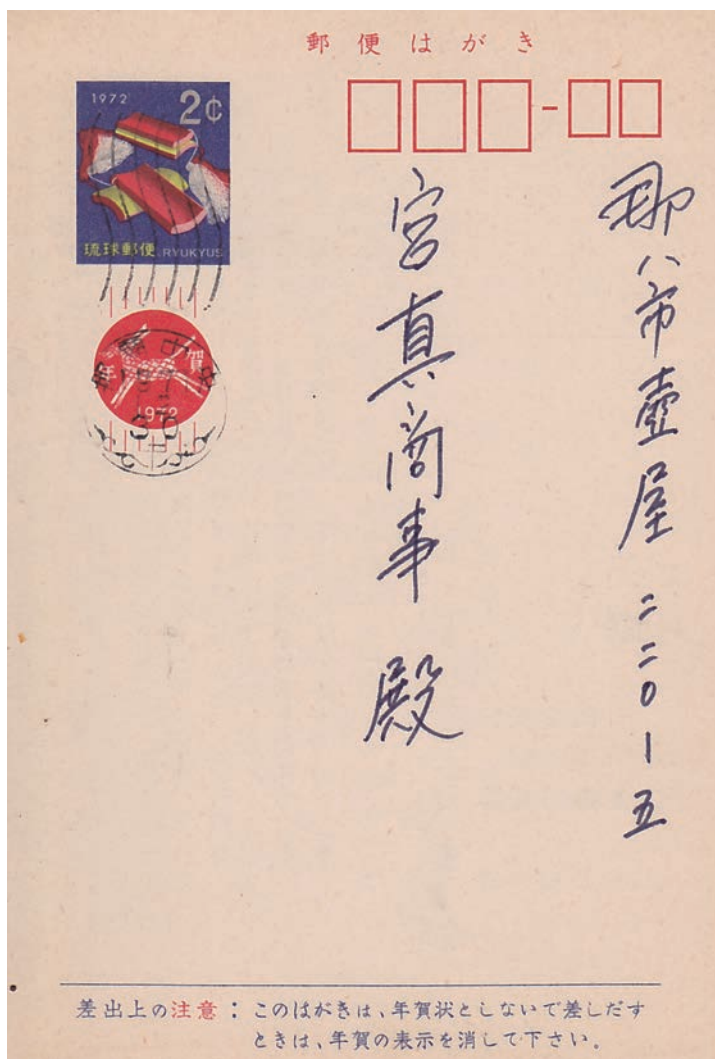 郵便はがき
1972 2¢
琉球郵便 RYUKYUS
年賀
1972
那八市壺屋二二〇ー五
宮真商事殿
差出上の注意：このはがきは、年賀状としないで差しだす
ときは、年賀の表示を消して下さい。